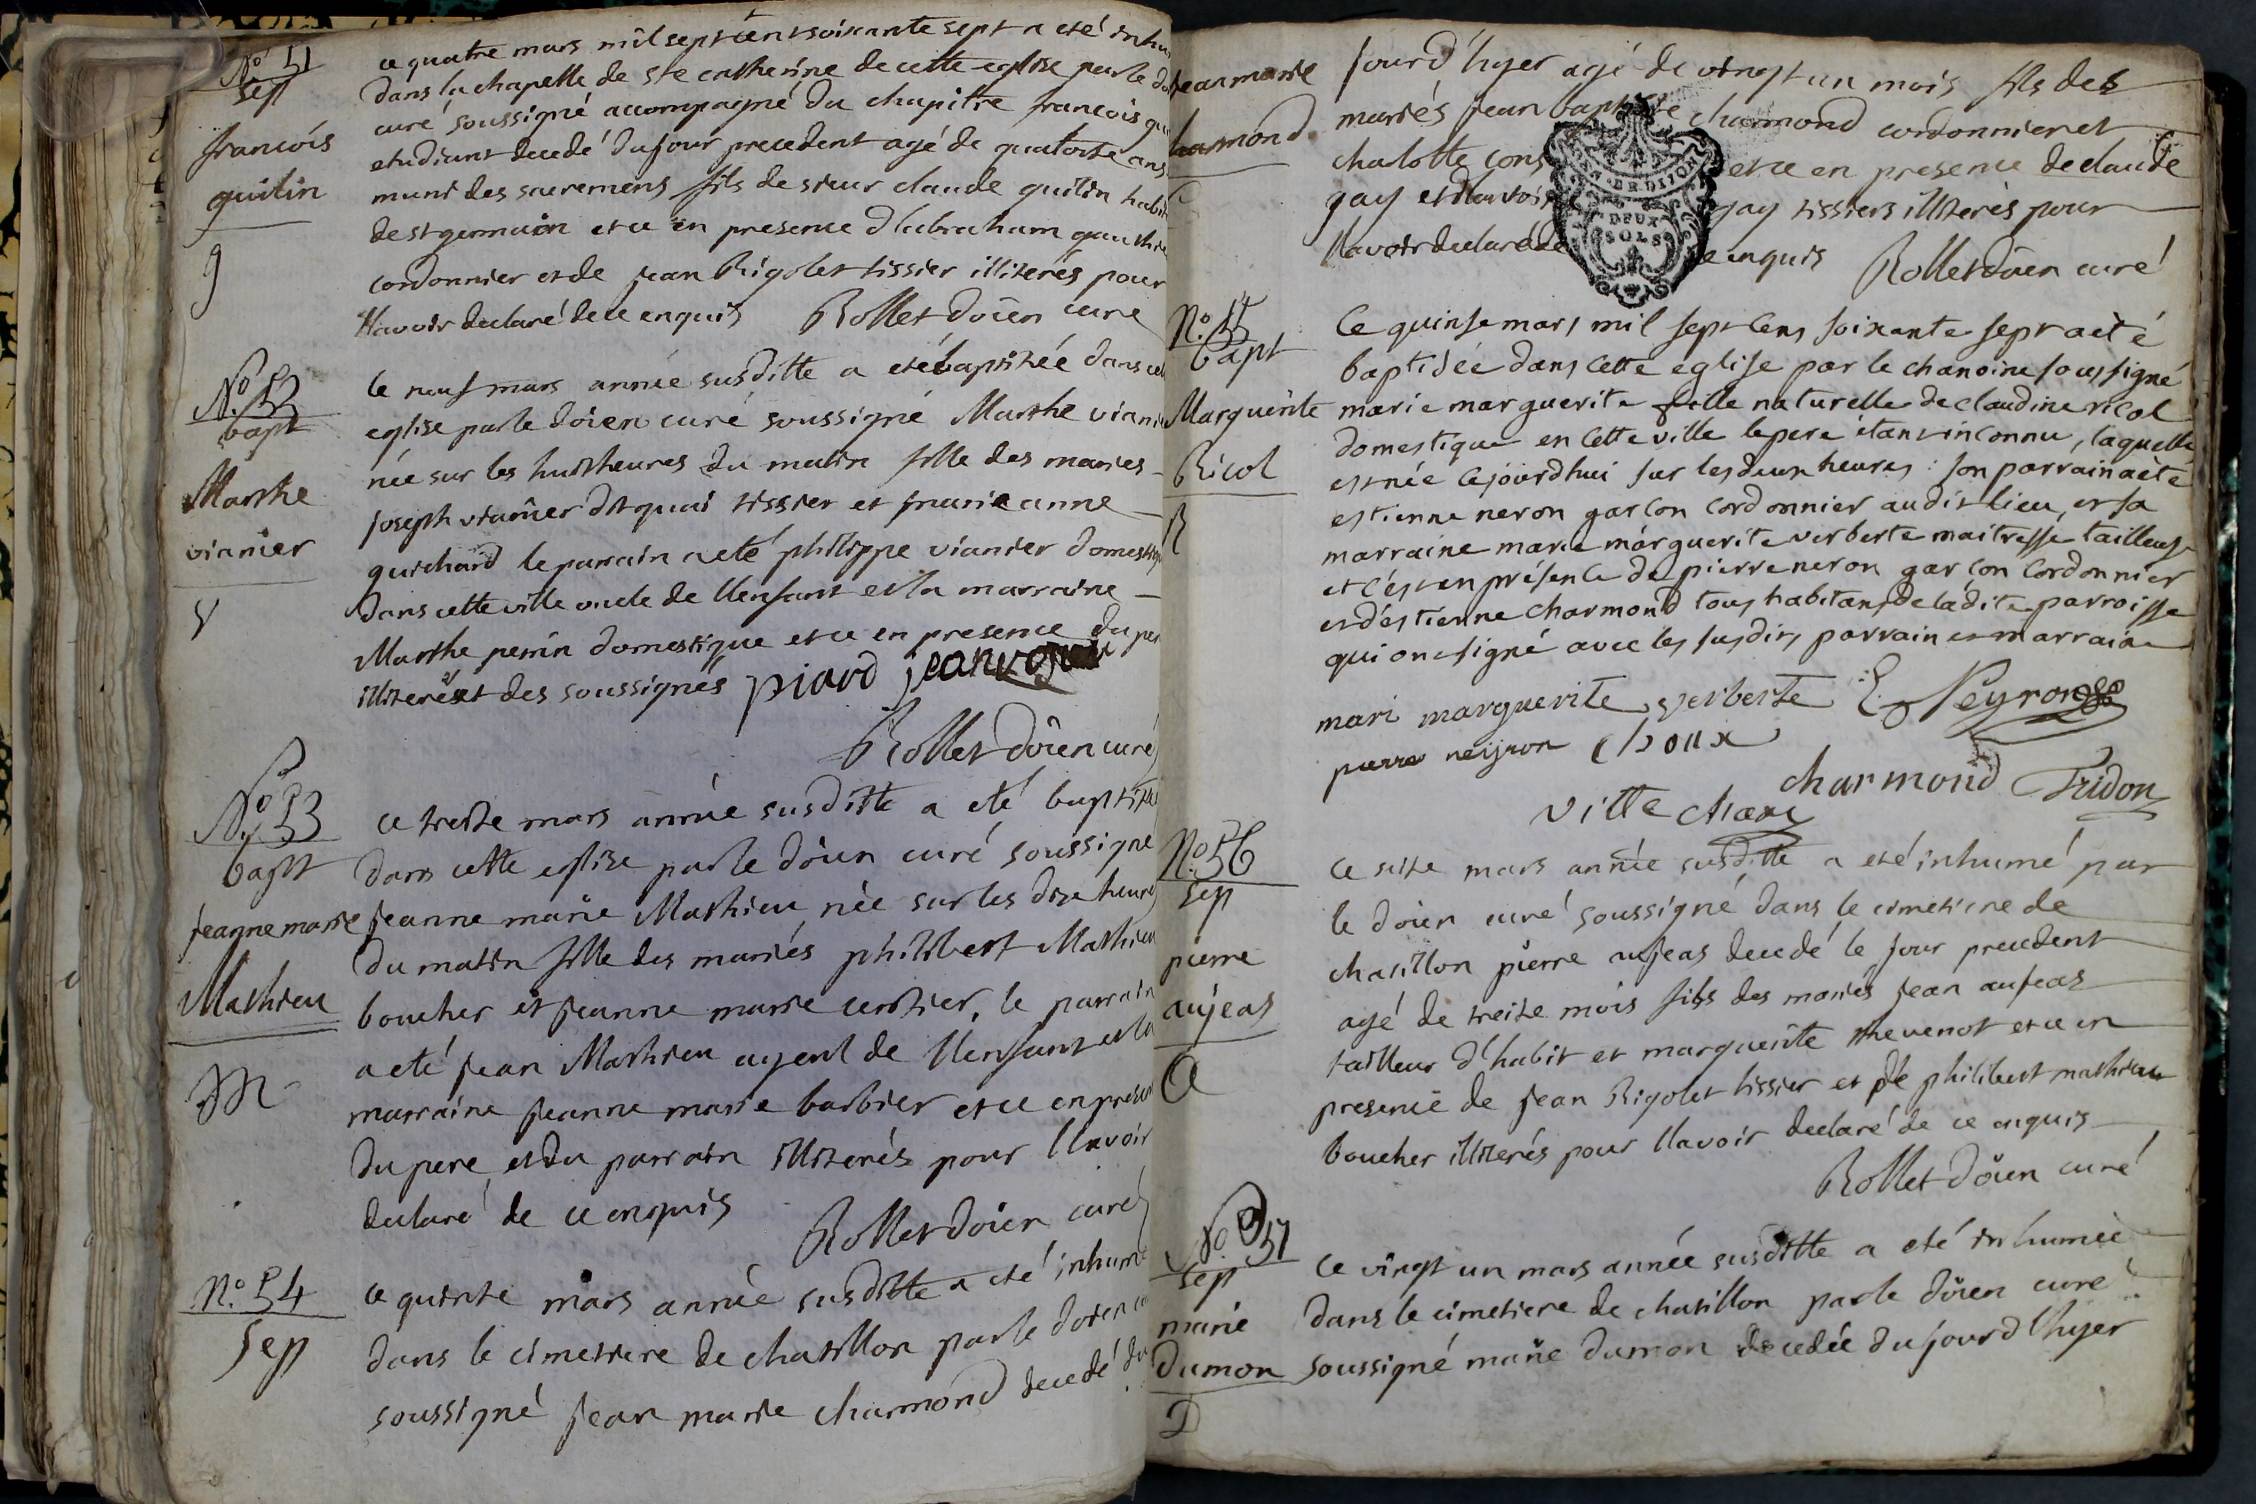 No 51
sep
francois
guitin
g
ce quatre mars mil sept cent soixante sept a eté inhu
dans la chapelle de ste catherine de cette eglise par le do
curé soussigné accompagné du chapitre francois gui
etudiant decedé du jour precedent agé de quatorze ans
muni des sacremens fils de sieur claude guitin habit
de st germain et ce en presence d'abraham gauthie
cordonnier et de jean Rigolet tissier illiterés pour
l'avoir declaré de ce enquis Rollet doien curé
No 52
bapt
Marthe
vianier
V
le neuf mars année susditte a eté baptisée dans cet
eglise par le doien curé soussigné Marthe viani
née sur les huit heures du matin fille des mariés
joseph vianier dit quai tissier et marie anne
guichard le parrain a eté philippe vianier domestiq
dans cette ville oncle de l'enfant et la marraine
Marthe perrin domestique et ce en presence du per
illiteré et des soussignés piard jean
Rollet doien curé
No 53
bapt
jeanne marie
Mathieu
M
ce treize mars année susditte a eté baptisé
dans cette eglise par le doien curé soussigné
jeanne marie Mathieu née sur les dix heures
du matin fille des mariés philibert Mathieu
boucher et jeanne marie certier, le parrain
a eté jean Mathieu ayeul de l'enfant et la
marraine jeanne marie barbier et ce en presen
du pere et du parrain illiterés pour l'avoir
declaré de ce enquis Rollet doien curé
No 54
Sep
ce quinze mars année susditte a eté inhumé
dans le cimetiere de chatillon par le doien cu
soussigné jean marie charmond decedé du
jean marie
charmond
C
jourd'hyer agé de vingt un mois fils des
mariés jean baptiste charmond cordonnier et
charlotte cons et ce en presence de claude
gay et gay tissiers illiterés pour
l'avoir declaré de ce enquis Rollet doien curé
No 55
bapt
Marguerite
Ricol
R
Ce quinse mars mil sept cens soixante sept a eté
baptisée dans cette eglise par le chanoine soussigné
marie marguerite fille naturelle de claudine ricol
domestique en cette ville le pere étant inconnu, laquelle
est née cejourdhui sur les deux heures : son parrain a eté
estienne neron garcon cordonnier audit lieu, et sa
marraine marie marguerite verberte maitresse tailleuse
et c'est en présence de pierre neron garcon cordonnier
et d'estienne charmond tous habitans de ladite parroisse
qui ont signé avec les susdits parrain et marraine
mari marguerite verberte E. Neyron
pierre neijron choux
charmond Tridon
ville chan
No 56
sep
pierre
aujeas
A
ce seize mars année susditte a eté inhumé par
le doien curé soussigné dans le cimetiere de
chatillon pierre aujeas decedé le jour precedent
agé de treize mois fils des mariés jean aujeas
tailleur d'habit et marguerite thevenot et ce en
presence de jean Rigolet tissier et de philibert mathieu
boucher illiterés pour l'avoir declaré de ce enquis
Rollet doien curé
No 57
sep
marie
dumon
D
ce vingt un mars année susditte a eté inhumée
dans le cimetiere de chatillon par le doien curé
soussigné marie dumon decedée du jourd'hyer
GEN. DE DIJON
DEUX
SOLS